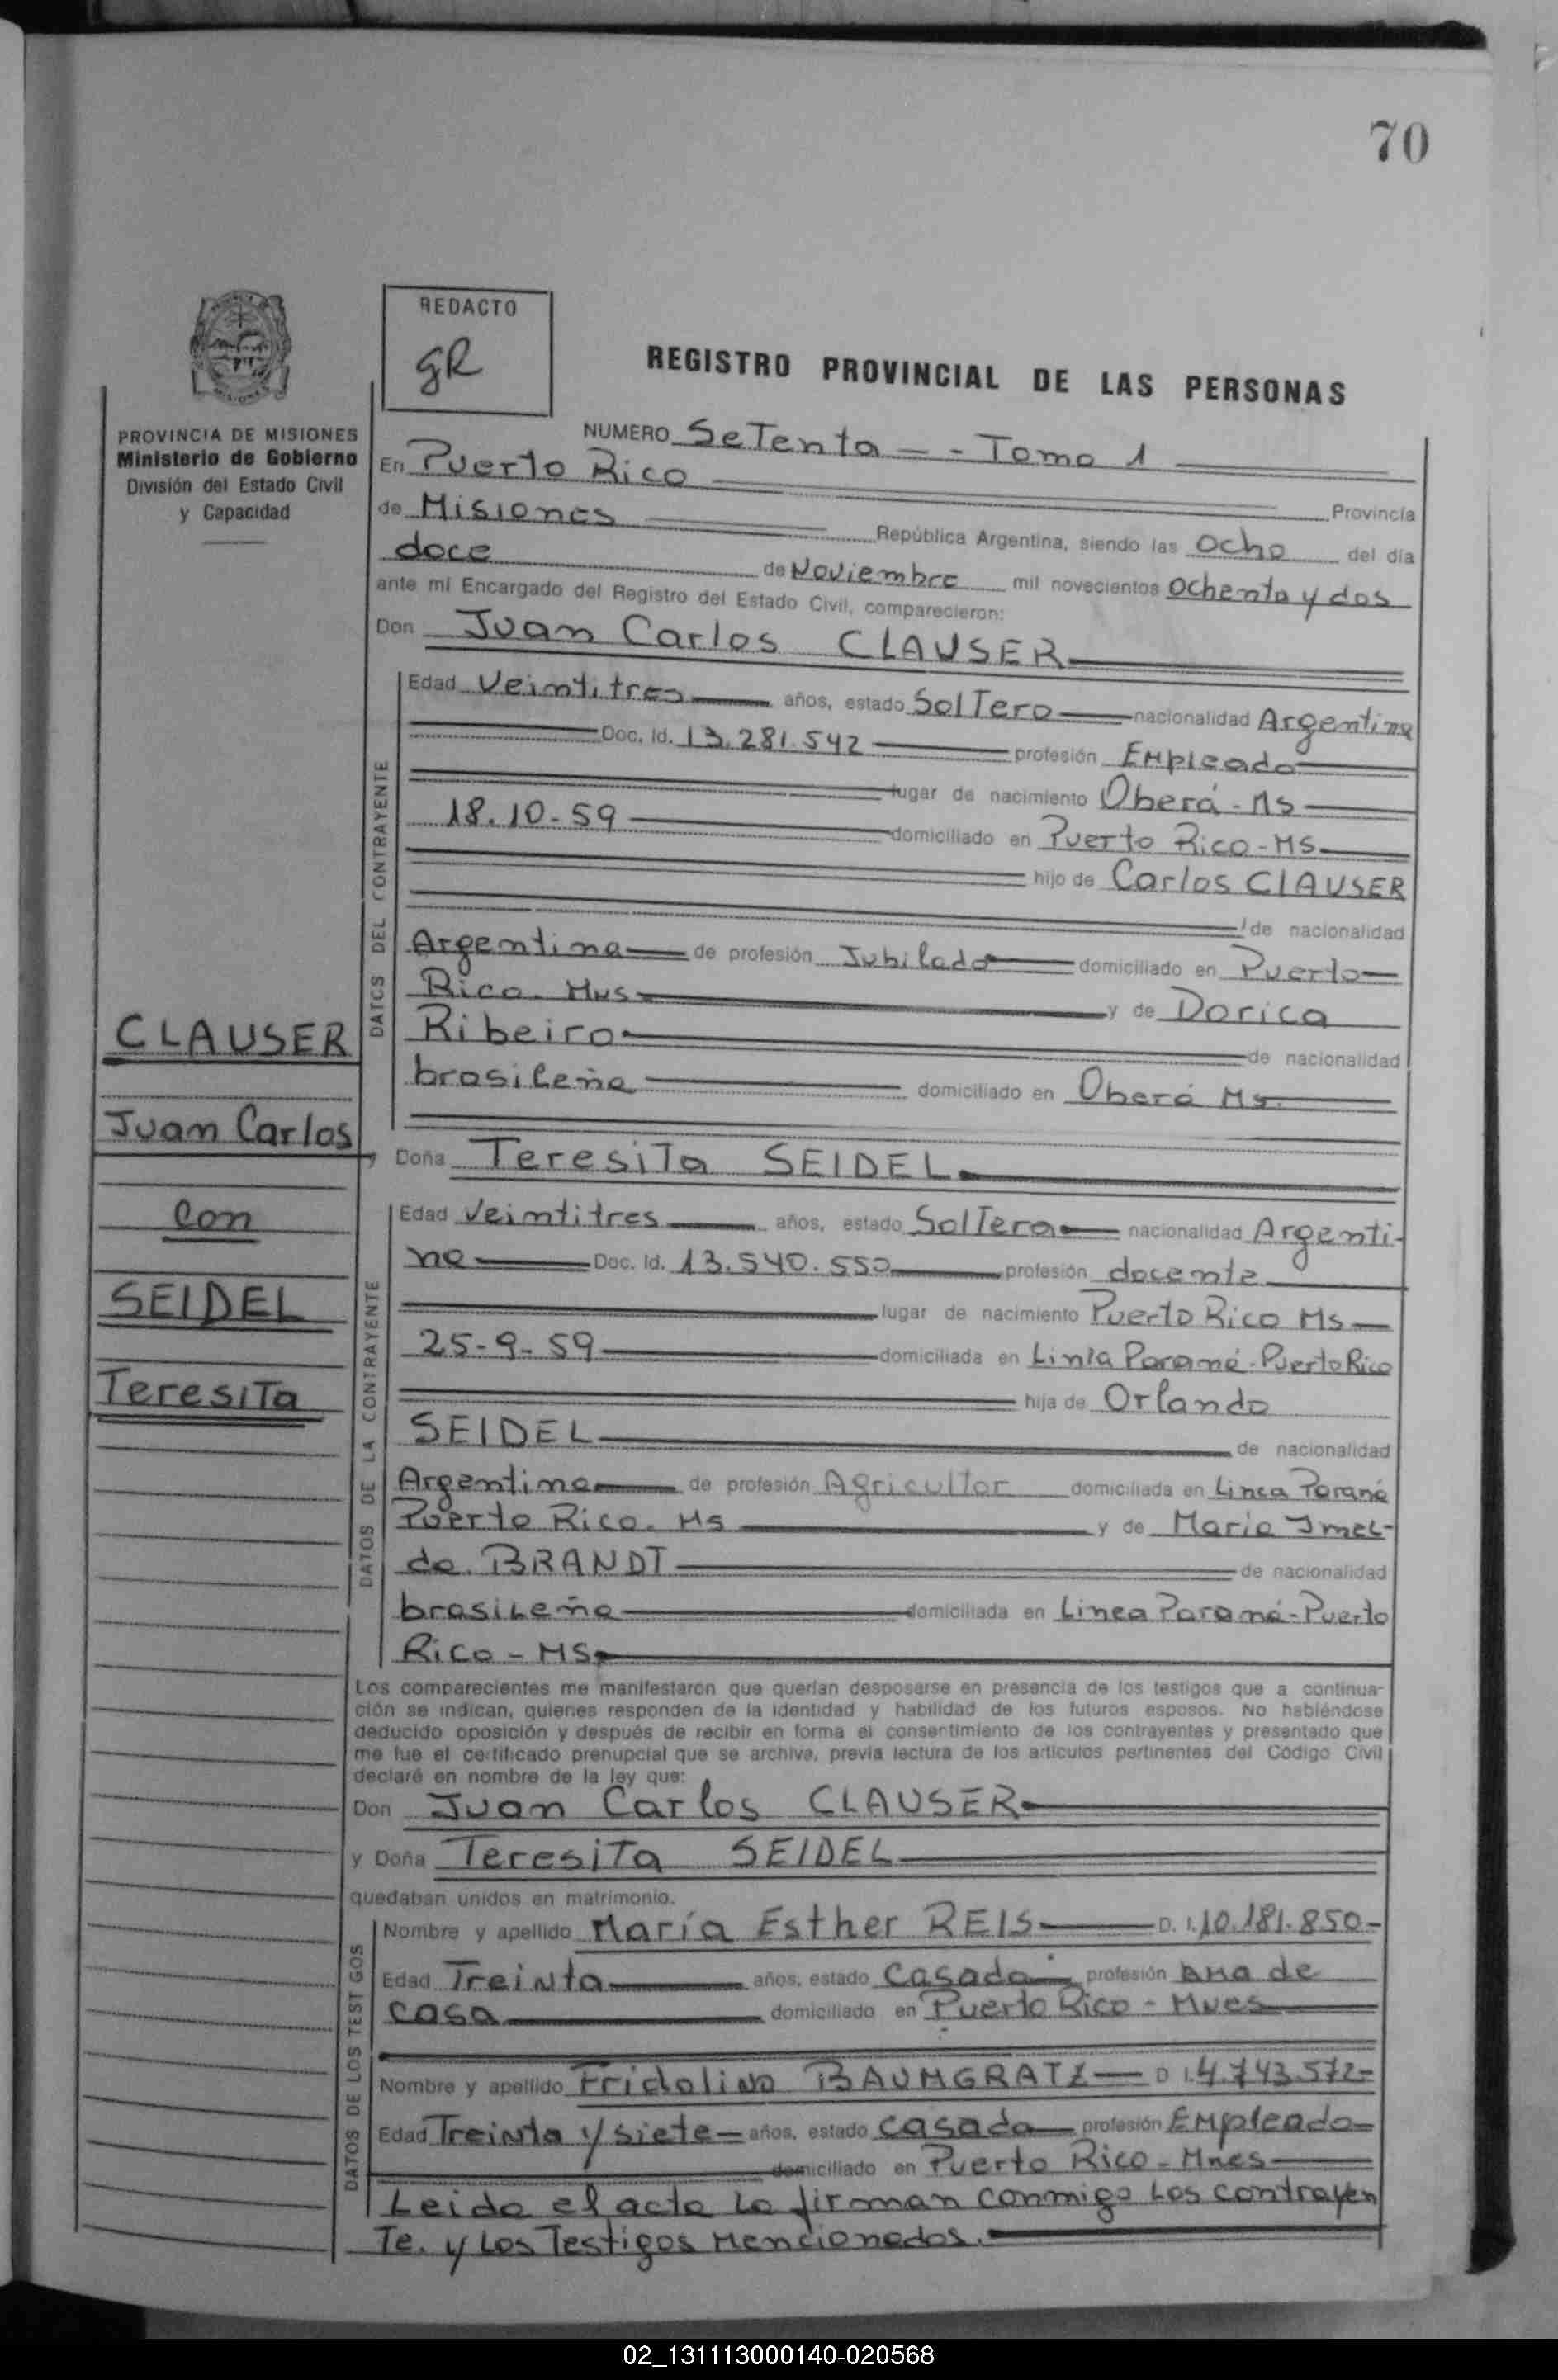 70
REDACTO
gR
REGISTRO PROVINCIAL DE LAS PERSONAS
PROVINCIA DE MISIONES
Ministerio de Gobierno
División del Estado Civil
y Capacidad
NUMERO SeTenta - - Tomo 1
En Puerto Rico Provincia
de Misiones República Argentina, siendo las ocho del día
doce de Noviembre mil novecientos ochenta y dos
ante mi Encargado del Registro del Estado Civil, comparecieron:
Don Juan Carlos CLAUSER
DATOS DEL CONTRAYENTE
Edad Veintitres años, estado SolTero nacionalidad Argentina
Doc. Id. 13.281.542 profesión EMpleado
lugar de nacimiento Oberá - Ms
18.10-59 domiciliado en Puerto Rico-MS.
hijo de Carlos ClAUSER
de nacionalidad
Argentina de profesión Jubilado domiciliado en Puerto
Rico. Mns y de Dorica
Ribeiro de nacionalidad
brasileña domiciliado en Oberá Ms.
CLAUSER
Juan Carlos
con
SEIDEL
TeresiTa
y Doña TeresiTa SEIDEL
DATOS DE LA CONTRAYENTE
Edad Veintitres años, estado SolTera nacionalidad Argenti-
na Doc. Id. 13.540.550 profesión docente
lugar de nacimiento Puerto Rico Ms
25-9-59 domiciliada en Linia Paraná-Puerto Rico
hija de Orlando
SEIDEL de nacionalidad
Argentina de profesión Agricultor domiciliada en Linea Paraná
Puerto Rico. Ms y de Maria Imel-
da. BRANDT de nacionalidad
brasileña domiciliada en Linea Paraná-Puerto
Rico - MS
Los comparecientes me manifestaron que querían desposarse en presencia de los testigos que a continua-
ción se indican, quienes responden de la identidad y habilidad de los futuros esposos. No habiéndose
deducido oposición y después de recibir en forma el consentimiento de los contrayentes y presentado que
me fue el certificado prenupcial que se archiva, previa lectura de los artículos pertinentes del Código Civil
declaré en nombre de la ley que:
Don Juan Carlos CLAUSER
y Doña TeresiTa SEIDEL
quedaban unidos en matrimonio.
DATOS DE LOS TESTIGOS
Nombre y apellido María Esther REIS D. I. 10.181.850-
Edad Treinta años, estado Casada profesión ama de
casa domiciliado en Puerto Rico - Mnes
Nombre y apellido Fridolino BAUMGRATZ D I. 4.743.572-
Edad Treinta y siete años, estado casado profesión EMpleado
domiciliado en Puerto Rico - Mnes
Leida el acta la firman conmigo los contrayen
Te. y los Testigos Mencionados.
02_131113000140-020568